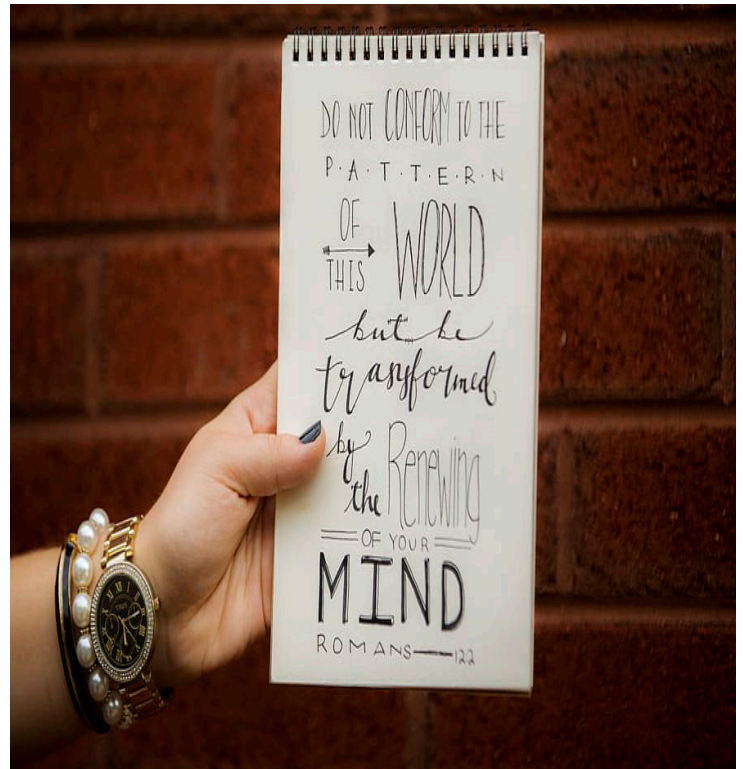 DO NOT CONFORM TO THE
P·A·T·T·E·R·N
OF
THIS WORLD
but be
transformed
by
the Renewing
OF YOUR
MIND
ROMANS—122